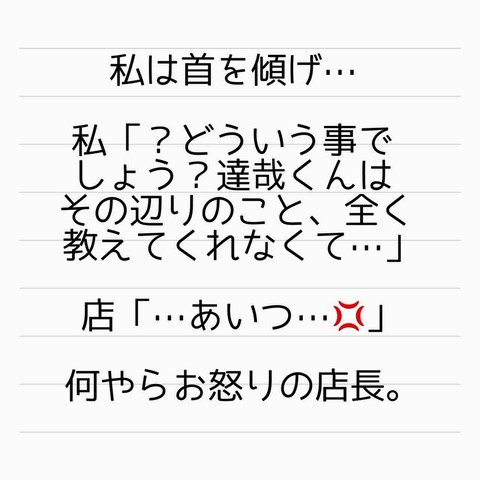 私は首を傾げ…
私「？どういう事で
しょう？達哉くんは
その辺りのこと、全く
教えてくれなくて…」
店「…あいつ…💢」
何やらお怒りの店長。